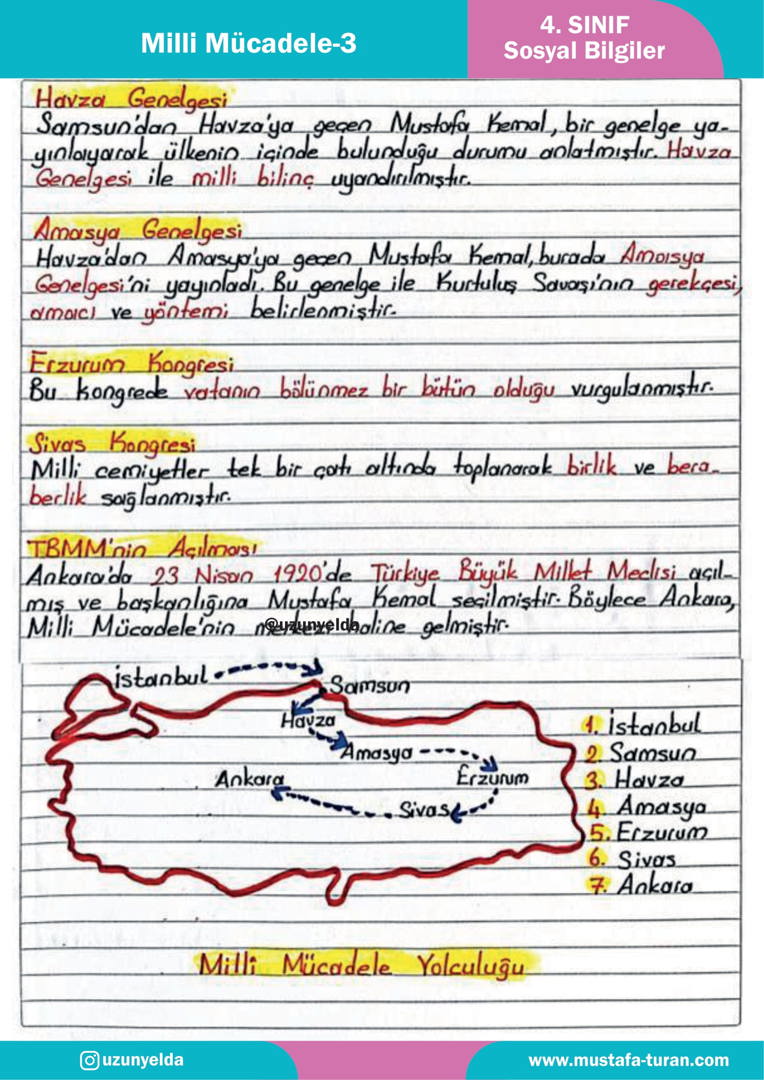 Milli Mücadele-3
4. SINIF
Sosyal Bilgiler
Havza Genelgesi
Samsun'dan Havza'ya geçen Mustafa Kemal, bir genelge ya-
yınlayarak ülkenin içinde bulunduğu durumu anlatmıştır. Havza
Genelgesi ile milli bilinç uyandırılmıştır.
Amasya Genelgesi
Havza'dan Amasya'ya geçen Mustafa Kemal, burada Amasya
Genelgesi'ni yayınladı. Bu genelge ile Kurtuluş Savaşı'nın gerekçesi,
amacı ve yöntemi belirlenmiştir.
Erzurum Kongresi
Bu kongrede vatanın bölünmez bir bütün olduğu vurgulanmıştır.
Sivas Kongresi
Milli cemiyetler tek bir çatı altında toplanarak birlik ve bera-
berlik sağlanmıştır.
TBMM'nin Açılması
Ankara'da 23 Nisan 1920'de Türkiye Büyük Millet Meclisi açıl-
mış ve başkanlığına Mustafa Kemal seçilmiştir. Böylece Ankara,
Milli Mücadele'nin merkezi haline gelmiştir.
@uzunyelda
İstanbul
Samsun
Havza
Amasya
Ankara
Erzurum
Sivas
1. İstanbul
2. Samsun
3. Havza
4. Amasya
5. Erzurum
6. Sivas
7. Ankara
Milli Mücadele Yolculuğu
uzunyelda
www.mustafa-turan.com